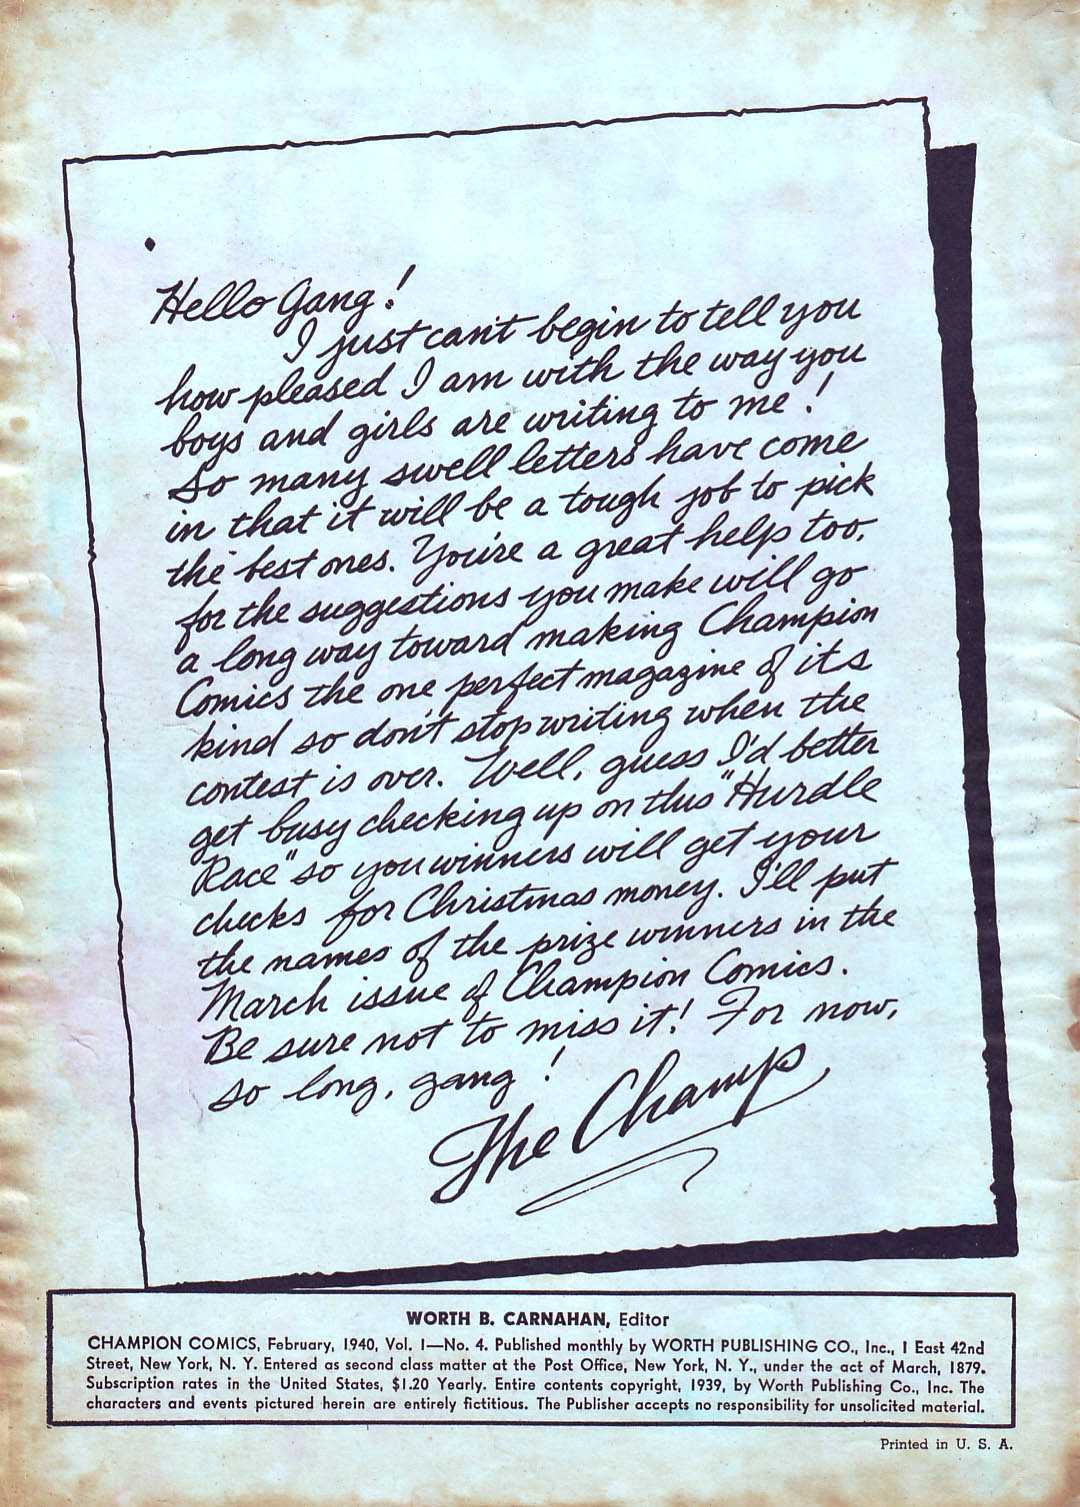 Hello Gang!
I just can't begin to tell you
how pleased I am with the way you
boys and girls are writing to me!
So many swell letters have come
in that it will be a tough job to pick
the best ones. You're a great help too,
for the suggestions you make will go
a long way toward making Champion
Comics the one perfect magazine of its
kind so don't stop writing when the
contest is over. Well, guess I'd better
get busy checking up on this "Hurdle
Race" so you winners will get your
checks for Christmas money. I'll put
the names of the prize winners in the
March issue of Champion Comics.
Be sure not to miss it! For now,
so long, gang!
The Champ
WORTH B. CARNAHAN, Editor
CHAMPION COMICS, February, 1940, Vol. I—No. 4. Published monthly by WORTH PUBLISHING CO., Inc., 1 East 42nd
Street, New York, N. Y. Entered as second class matter at the Post Office, New York, N. Y., under the act of March, 1879.
Subscription rates in the United States, $1.20 Yearly. Entire contents copyright, 1939, by Worth Publishing Co., Inc. The
characters and events pictured herein are entirely fictitious. The Publisher accepts no responsibility for unsolicited material.
Printed in U. S. A.